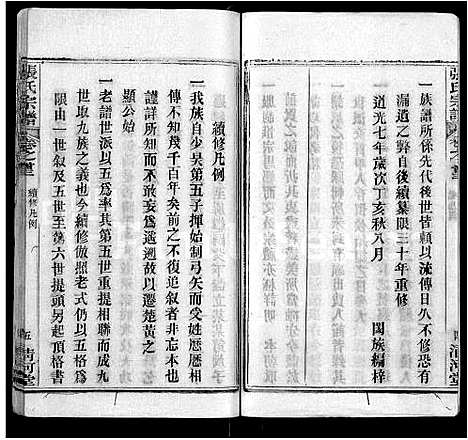 張氏宗譜
卷之壹
一族譜所係先代後世皆賴以流傳日久不修恐有
漏遺之聆自後續纂限三十年重修
道光七年歲次丁亥秋八月
闔族編梓
清河堂
張氏宗譜
卷之壹
續修凡例
五
清河堂
續修凡例
一我族自少昊第五子揮始制弓矢而受姓厯厯相
傳不知幾千百年矣前之不復追敘者非忘本也
謹詳所可考而不敢妄爲遥遡故以遷楚黄之
顯公始
一老譜世派以五爲率其第五世重提相聯而成九
世取九族之義也今續修倣照老式仍以五世爲
限由一世敘及五世至第六世提頭另起頂格書